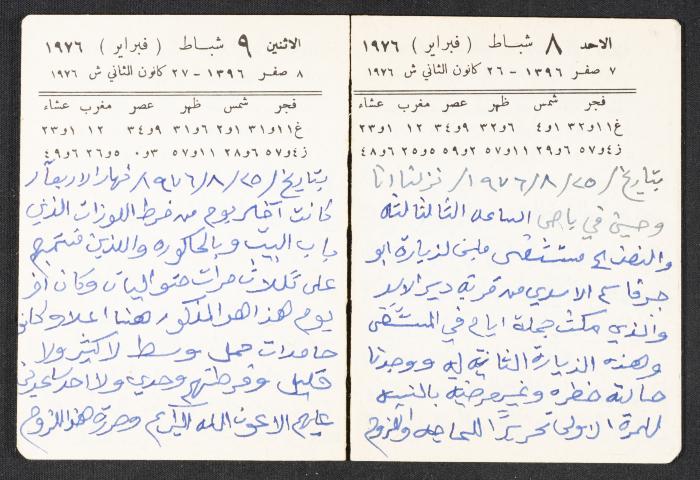 الاحد ٨ شباط ( فبراير ) ١٩٧٦
٧ صفر ١٣٩٦ - ٢٦ كانون الثاني ش ١٩٧٦
فجر شمس ظهر عصر مغرب عشاء
غ ١١و٣٢ ١و٤ ٦و٣٢ ٩و٣٤ ١٢ ١و٢٣
ز ٤و٥٧ ٦و٢٩ ١١و٥٧ ٢و٥٩ ٥و٢٥ ٦و٤٨
بتاريخ / ٢٥ / ٨ / ١٩٧٦ / نزلنا انا
وحسين في باص الساعه الثالثه
والنصف مستشفى لزيارة ابو
الاسدي من قرية دير الاسد
والذي مكث جملة ايام في المستشفى
وهذه الزيارة الثانيه له ووجدنا
حالته خطره وغير مرضيه بالنسبه
للمرة الاولى تحريرًا
الاثنين ٩ شباط ( فبراير ) ١٩٧٦
٨ صفر ١٣٩٦ - ٢٧ كانون الثاني ش ١٩٧٦
فجر شمس ظهر عصر مغرب عشاء
غ ١١و٣١ ١و٢ ٦و٣١ ٩و٣٤ ١٢ ١و٢٣
ز ٤و٥٧ ٦و٢٨ ١١و٥٧ ٣و٠ ٥و٢٦ ٦و٤٩
بتاريخ / ٢٥ / ٨ / ١٩٧٦ / نهار الاربعاء
كانت آخر يوم من فرط اللوزات الذي
باب البيت وبالحاكوره واللذين
على ثلاث مرات متواليات وكان آخر
يوم هذا هو المذكور هنا اعلاه وكانو
حامدات حمل وسط لا كثير ولا
قليل وفرطتهم وحدي ولا احد ساعدني
عليهم الا عون الله الكريم